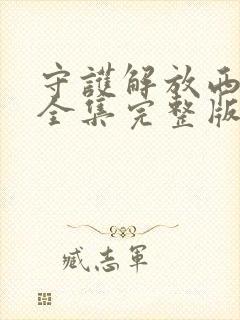 守護解放西
全集完整版
臧志軍